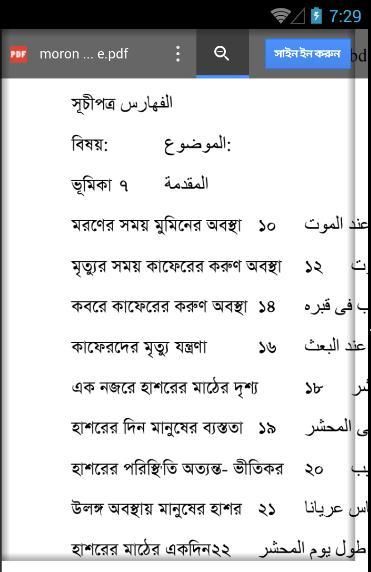 7:29
PDF moron ... e.pdf সাইন ইন করুন bd
সূচীপত্র الفهارس
বিষয়: الموضوع:
ভূমিকা ৭ المقدمة
মরণের সময় মুমিনের অবস্থা ১০ عند الموت
মৃত্যুর সময় কাফেরের করুণ অবস্থা ১২
কবরে কাফেরের করুণ অবস্থা ১৪ ب فى قبره
কাফেরদের মৃত্যু যন্ত্রণা ১৬ عند البعث
এক নজরে হাশরের মাঠের দৃশ্য ১৮
হাশরের দিন মানুষের ব্যস্ততা ১৯ ى المحشر
হাশরের পরিস্থিতি অত্যন্ত- ভীতিকর ২০
উলঙ্গ অবস্থায় মানুষের হাশর ২১ اس عريانا
হাশরের মাঠের একদিন২২ طول يوم المحشر